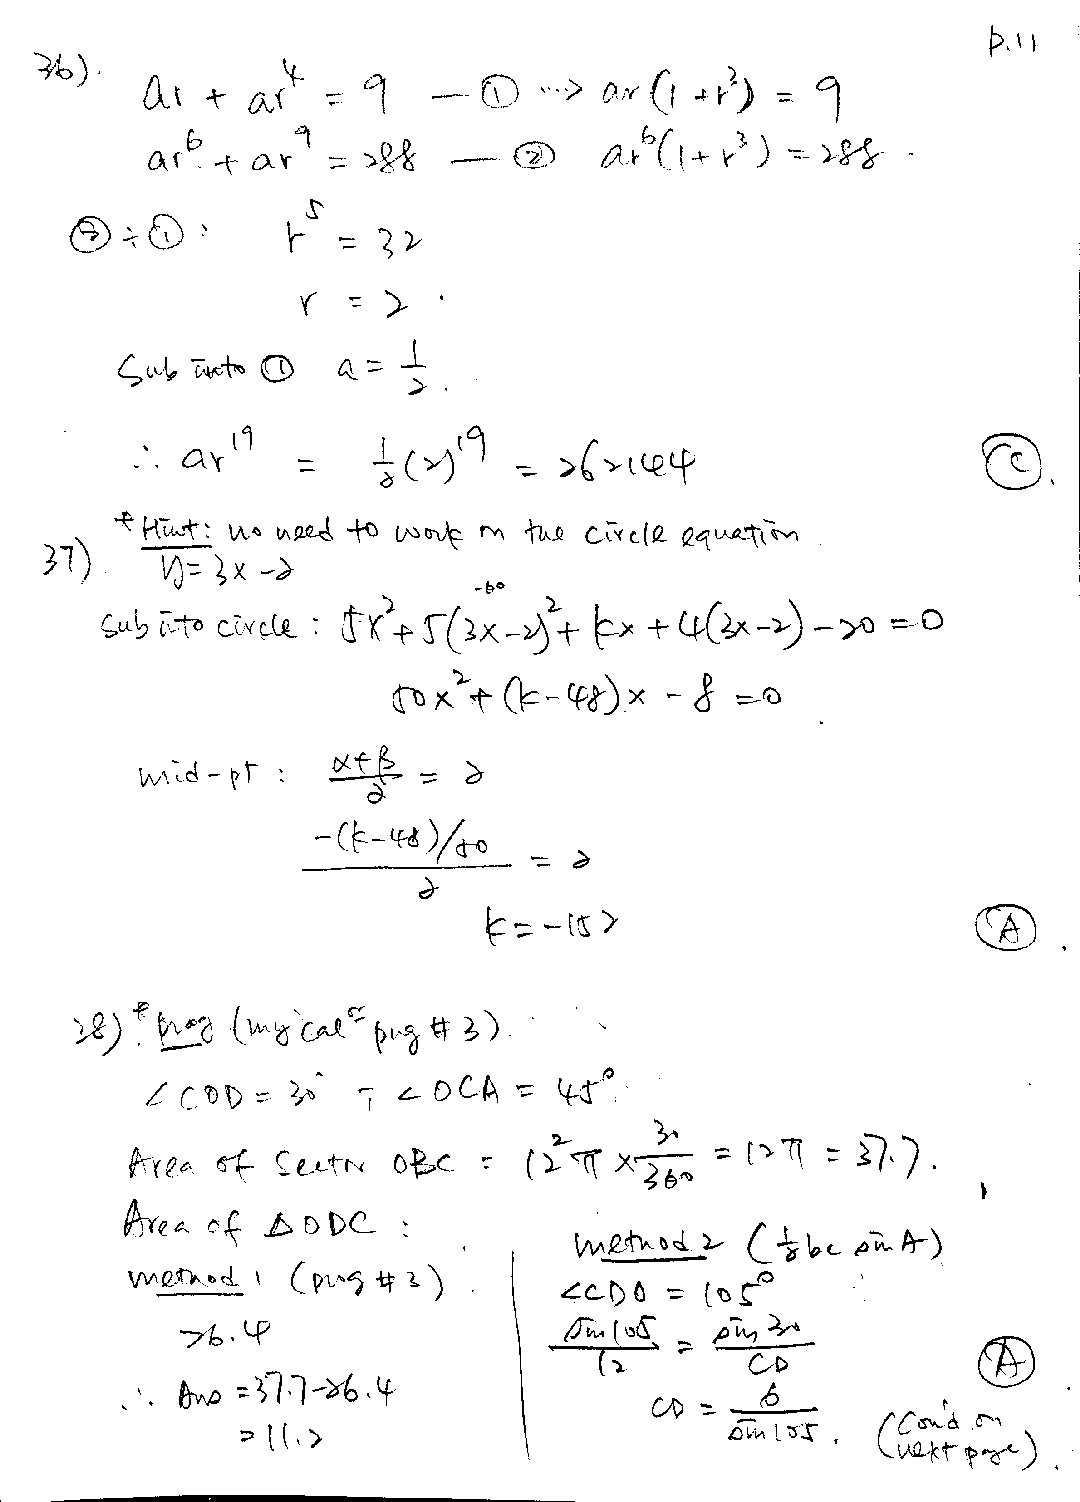 p.11
36).
ar + ar⁴ = 9 — ① ···> ar(1+r³) = 9
ar⁶ + ar⁹ = 288 — ② ar⁶(1+r³) = 288.
②÷①: r⁵ = 32
r = 2.
Sub into ① a = 1/2.
∴ ar¹⁹ = 1/2(2)¹⁹ = 262144 Ⓒ.
* Hint: no need to work on the circle equation
37). y = 3x-2
-60
Sub into circle : 5x²+5(3x-2)²+kx+4(3x-2)-20=0
50x²+(k-48)x-8=0
mid-pt : (α+β)/2 = 2
(-(k-48)/50)/2 = 2
k=-152 Ⓐ.
38) * prog (my calʳ prg #3).
∠COD = 30° , ∠OCA = 45°.
Area of Sector OBC = 12²π × 30/360 = 12π = 37.7.
Area of ΔODC :
method 1 (prg #3)
26.4
∴ Ans = 37.7-26.4
= 11.3
method 2 (1/2 bc sin A)
∠CDO = 105°
sin 105/12 = sin 30/CD
CD = 6/sin 105. Ⓐ
(Con'd on
next page).